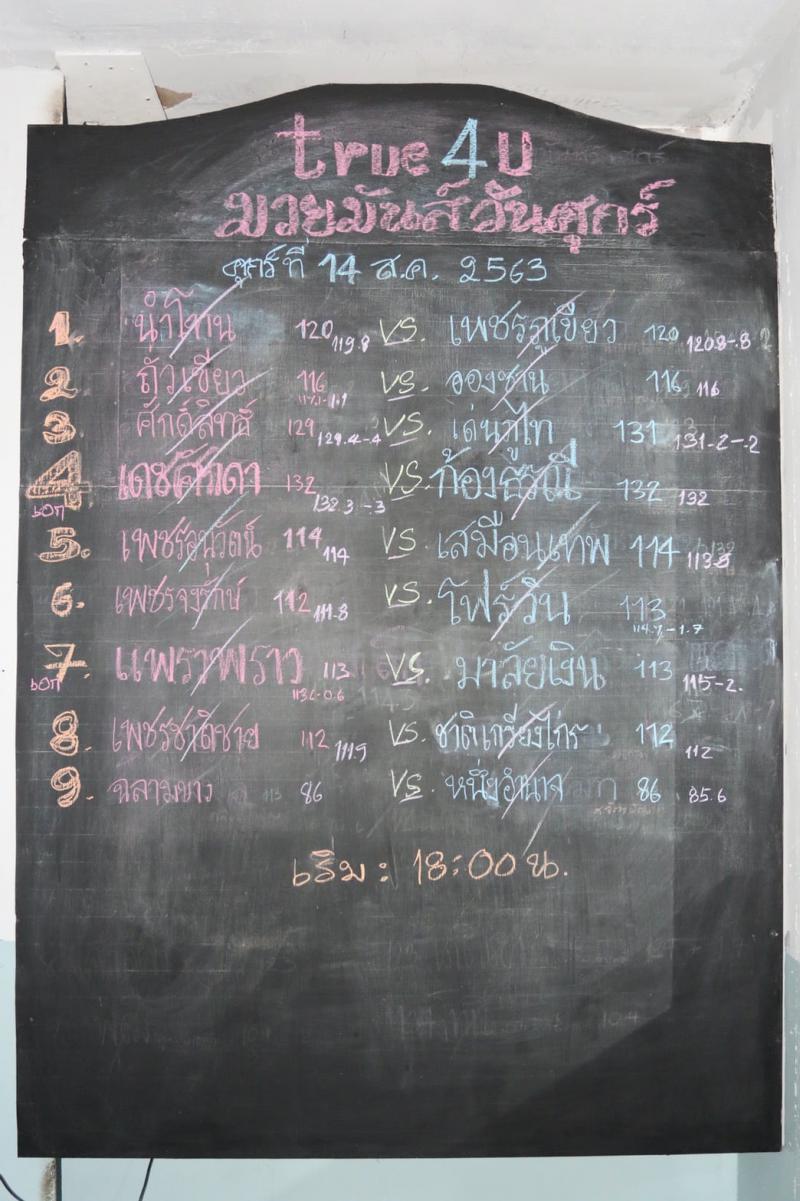 true 4 U
มวยมันส์วันศุกร์
ศุกร์ที่ 14 ส.ค. 2563
1. นำโทน 120 119.8 VS. เพชรภูเขียว 120 120.8-.8
2. ถั่วเขียว 116 117.1-1.1 VS. ออง 116 116
3. ศักดิ์สิทธิ์ 129 129.4-4 VS. เด่นภูไท 131 131-2-.2
4 เดชศักดา 132 132.3-3 VS. ก้องธรณี 132 132
60ก
5. เพชรอนุวัตน์ 114 114 VS. เสมือนเทพ 114 113.8
6. เพชรจงรักษ์ 112 111.8 VS. โฟร์วิน 113 114.7-1.7
7. แพรวพราว 113 113.6-0.6 VS. มาลัยเงิน 113 115-2.
60ก
8. เพชรชาติชาย 112 111.5 VS. ชาติเกรียงไกร 112 112
9. ฉลามขาว 86 VS หนึ่งอำนาจ 86 85.6
เริ่ม : 18:00 น.